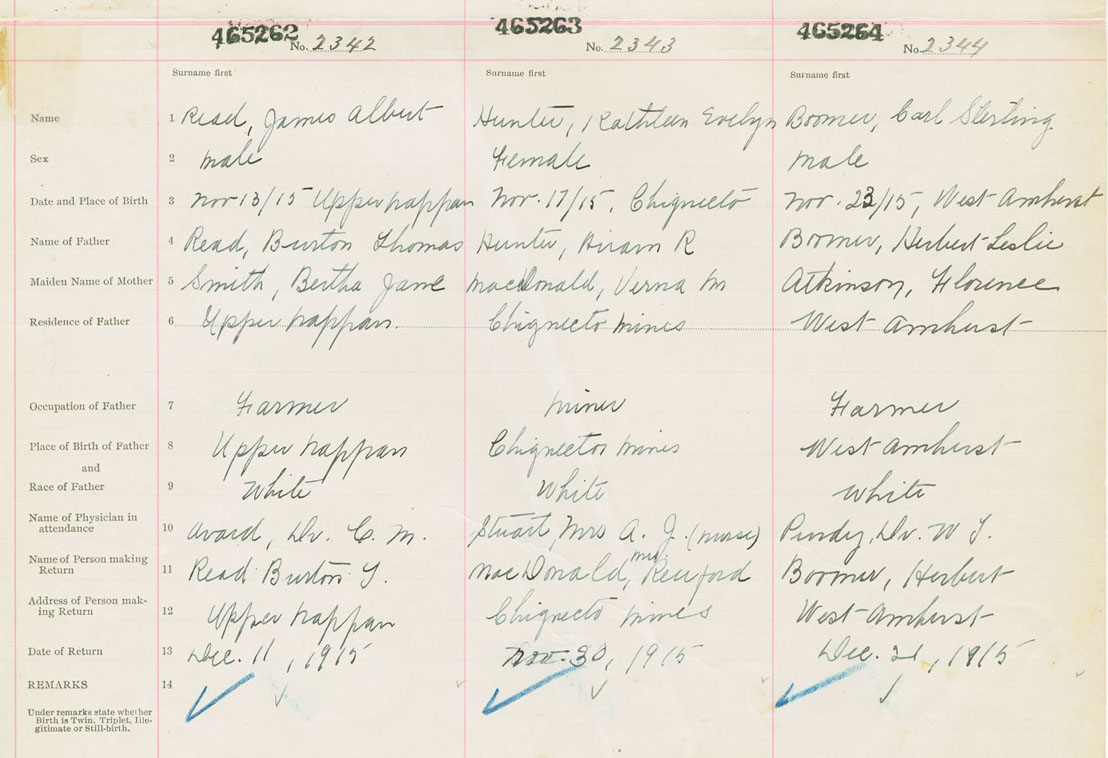 465262 No. 2342 465263 No. 2343 465264 No. 2344
Surname first Surname first Surname first
Name 1 Read, James Albert Hunter, Kathleen Evelyn Boomer, Carl Sterling
Sex 2 male Female male
Date and Place of Birth 3 Nov 13/15 Upper nappan Nov. 17/15, Chignecto Nov. 23/15, West Amherst
Name of Father 4 Read, Burton Thomas Hunter, Hiram R Boomer, Herbert Leslie
Maiden Name of Mother 5 Smith, Bertha Jane MacDonald, Verna M Atkinson, Florence
Residence of Father 6 Upper nappan. Chignecto mines West Amherst
Occupation of Father 7 Farmer miner Farmer
Place of Birth of Father 8 Upper nappan Chignecto mines West Amherst
and
Race of Father 9 White White White
Name of Physician in
attendance 10 Avard, Dr. C. M. Stuart, Mrs A. J. (nurse) Purdy, Dr. W T.
Name of Person making
Return 11 Read Burton T. MacDonald, Mrs. Rexford Boomer, Herbert
Address of Person mak-
ing Return 12 Upper nappan Chignecto mines West Amherst
Date of Return 13 Dec. 11, 1915 Nov. 30, 1915 Dec. 21, 1915
REMARKS 14
Under remarks state whether
Birth is Twin, Triplet, Ille-
gitimate or Still-birth.